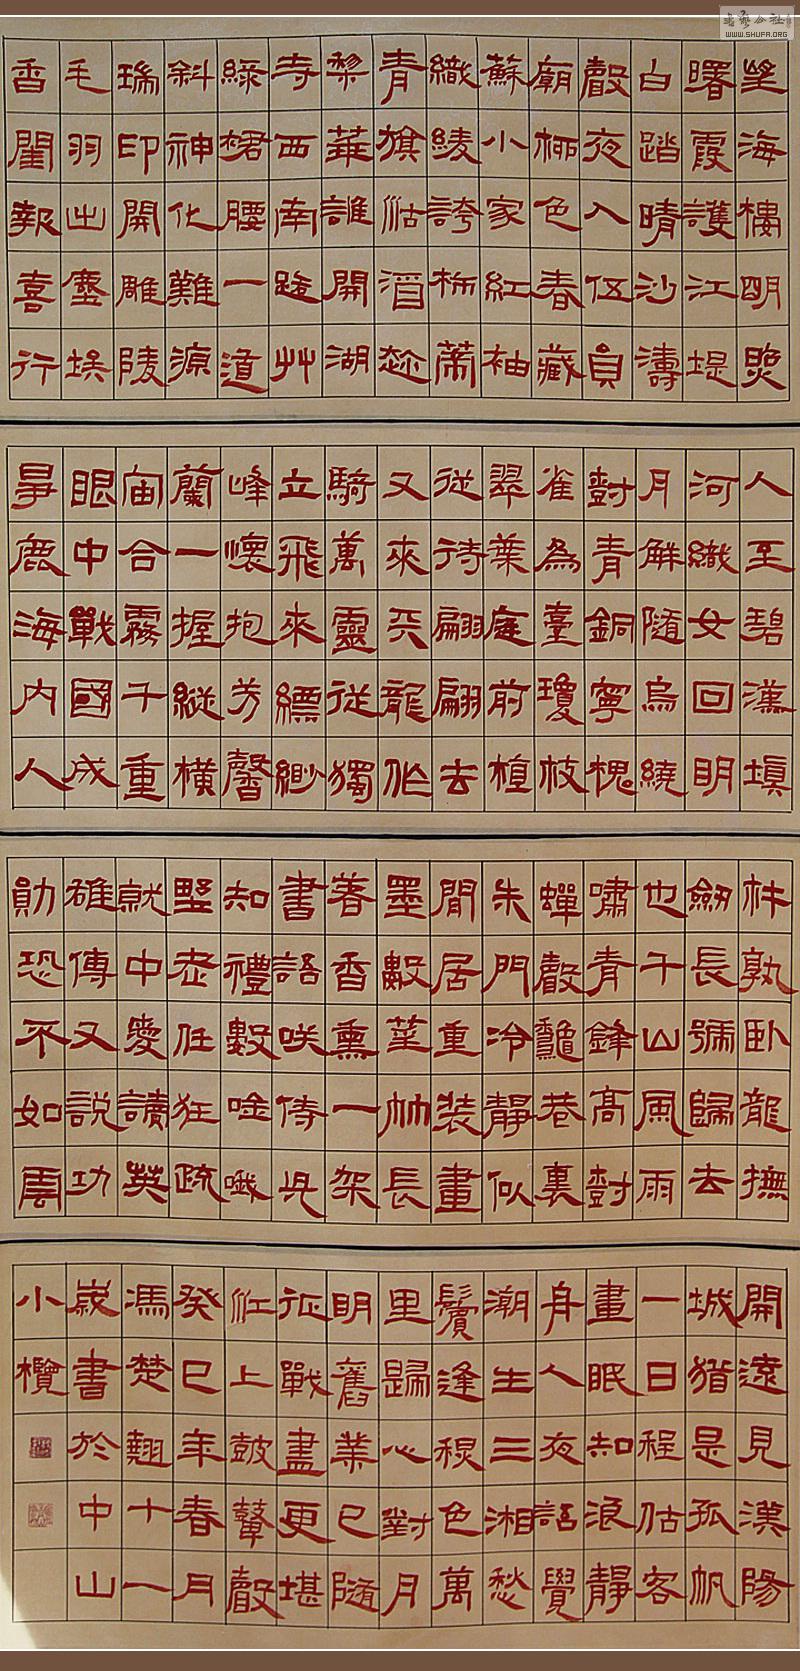 書藝公社
WWW.SHUFA.ORG
望海樓明照
曙霞護江堤
白踏晴沙濤
聲夜入伍員
廟柳色春藏
蘇小家紅袖
織綾誇柿蒂
青旗沽酒趁
黎華誰開湖
寺西南路艸
綠裙腰一道
斜神化難源
瑞印開雕陵
毛羽出塵埃
香閨報喜行
人至碧漢填
河織女回明
月解隨烏繞
樹青銅寧愧
雀為臺瓊枝
翠葉庭前植
從待翩翩去
又來天龍作
騎萬靈從獨
立飛來縹緲
峰懷抱芳馨
蘭一握縱橫
宙合霧千重
眼中戰國成
爭鹿海內人
材孰臥龍撫
劍長號歸去
也千山風雨
嘯青鋒高樹
蟬聲龝巷裏
朱門冷靜似
閒居重裝畫
墨數莖竹長
著香熏一架
書語咲侍兒
知禮數唫哦
野老任狂疏
就中愛讀英
雄傳又說功
勛恐不如雲
開遠見漢陽
城猶是孤帆
一日程估客
晝眠知浪靜
舟人夜語覺
潮生三湘愁
鬢逢秋色萬
里歸心對月
明舊業已隨
征戰盡更堪
江上鼓鼙聲
癸巳年春月
馮楚翹十一
歲書於中山
小欖